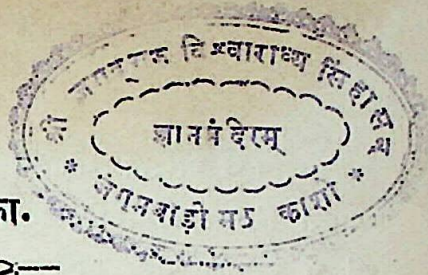 श्री जगद्गुरु विश्वाराध्य सिंहासन
ज्ञानमंदिरम्
* जंगमवाड़ी मठ काशी *
का.